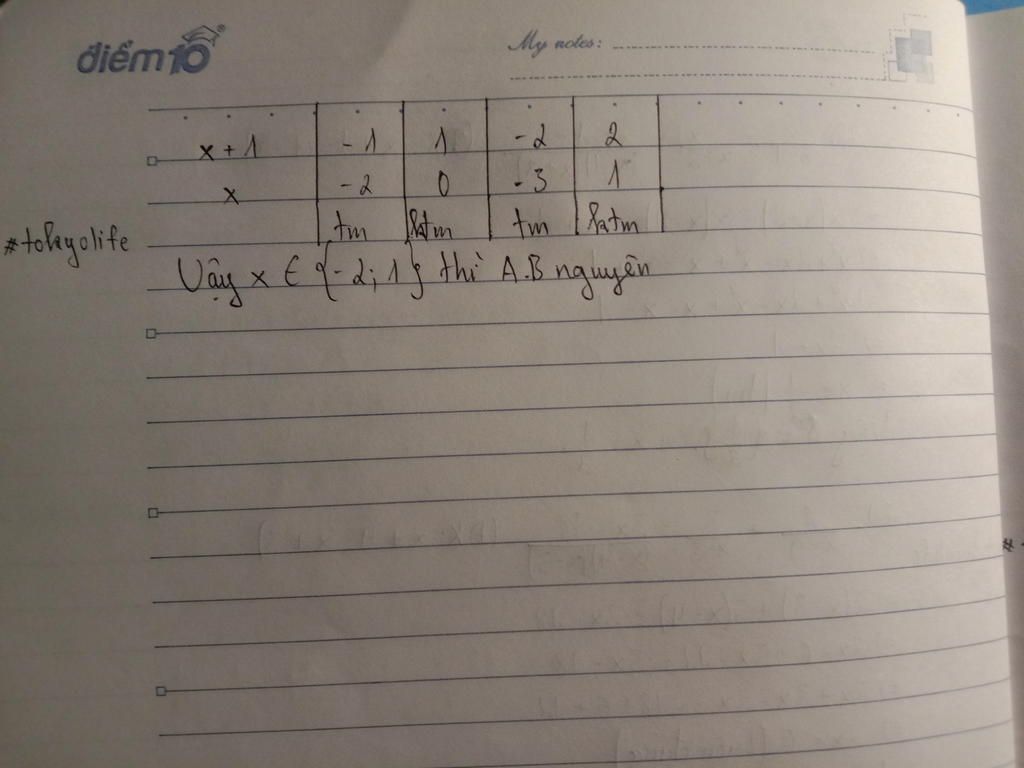 điểm 10
My notes:
x + 1 -1 1 -2 2
x -2 0 -3 1
tm ktm tm ktm
#tokyolife
Vậy x ∈ {-2; 1} thì A.B nguyên